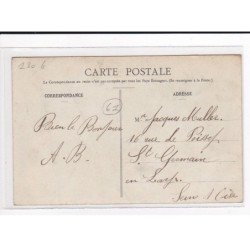 CARTE POSTALE
La Correspondance au recto n'est pas acceptée par tous les Pays Étrangers. (Se renseigner à la Poste.)
CORRESPONDANCE
ADRESSE
Bien le Bonjour
A. B.
M Jacques Muller
16 rue de Poissy
St Germain
en Laye
Sein & Oise